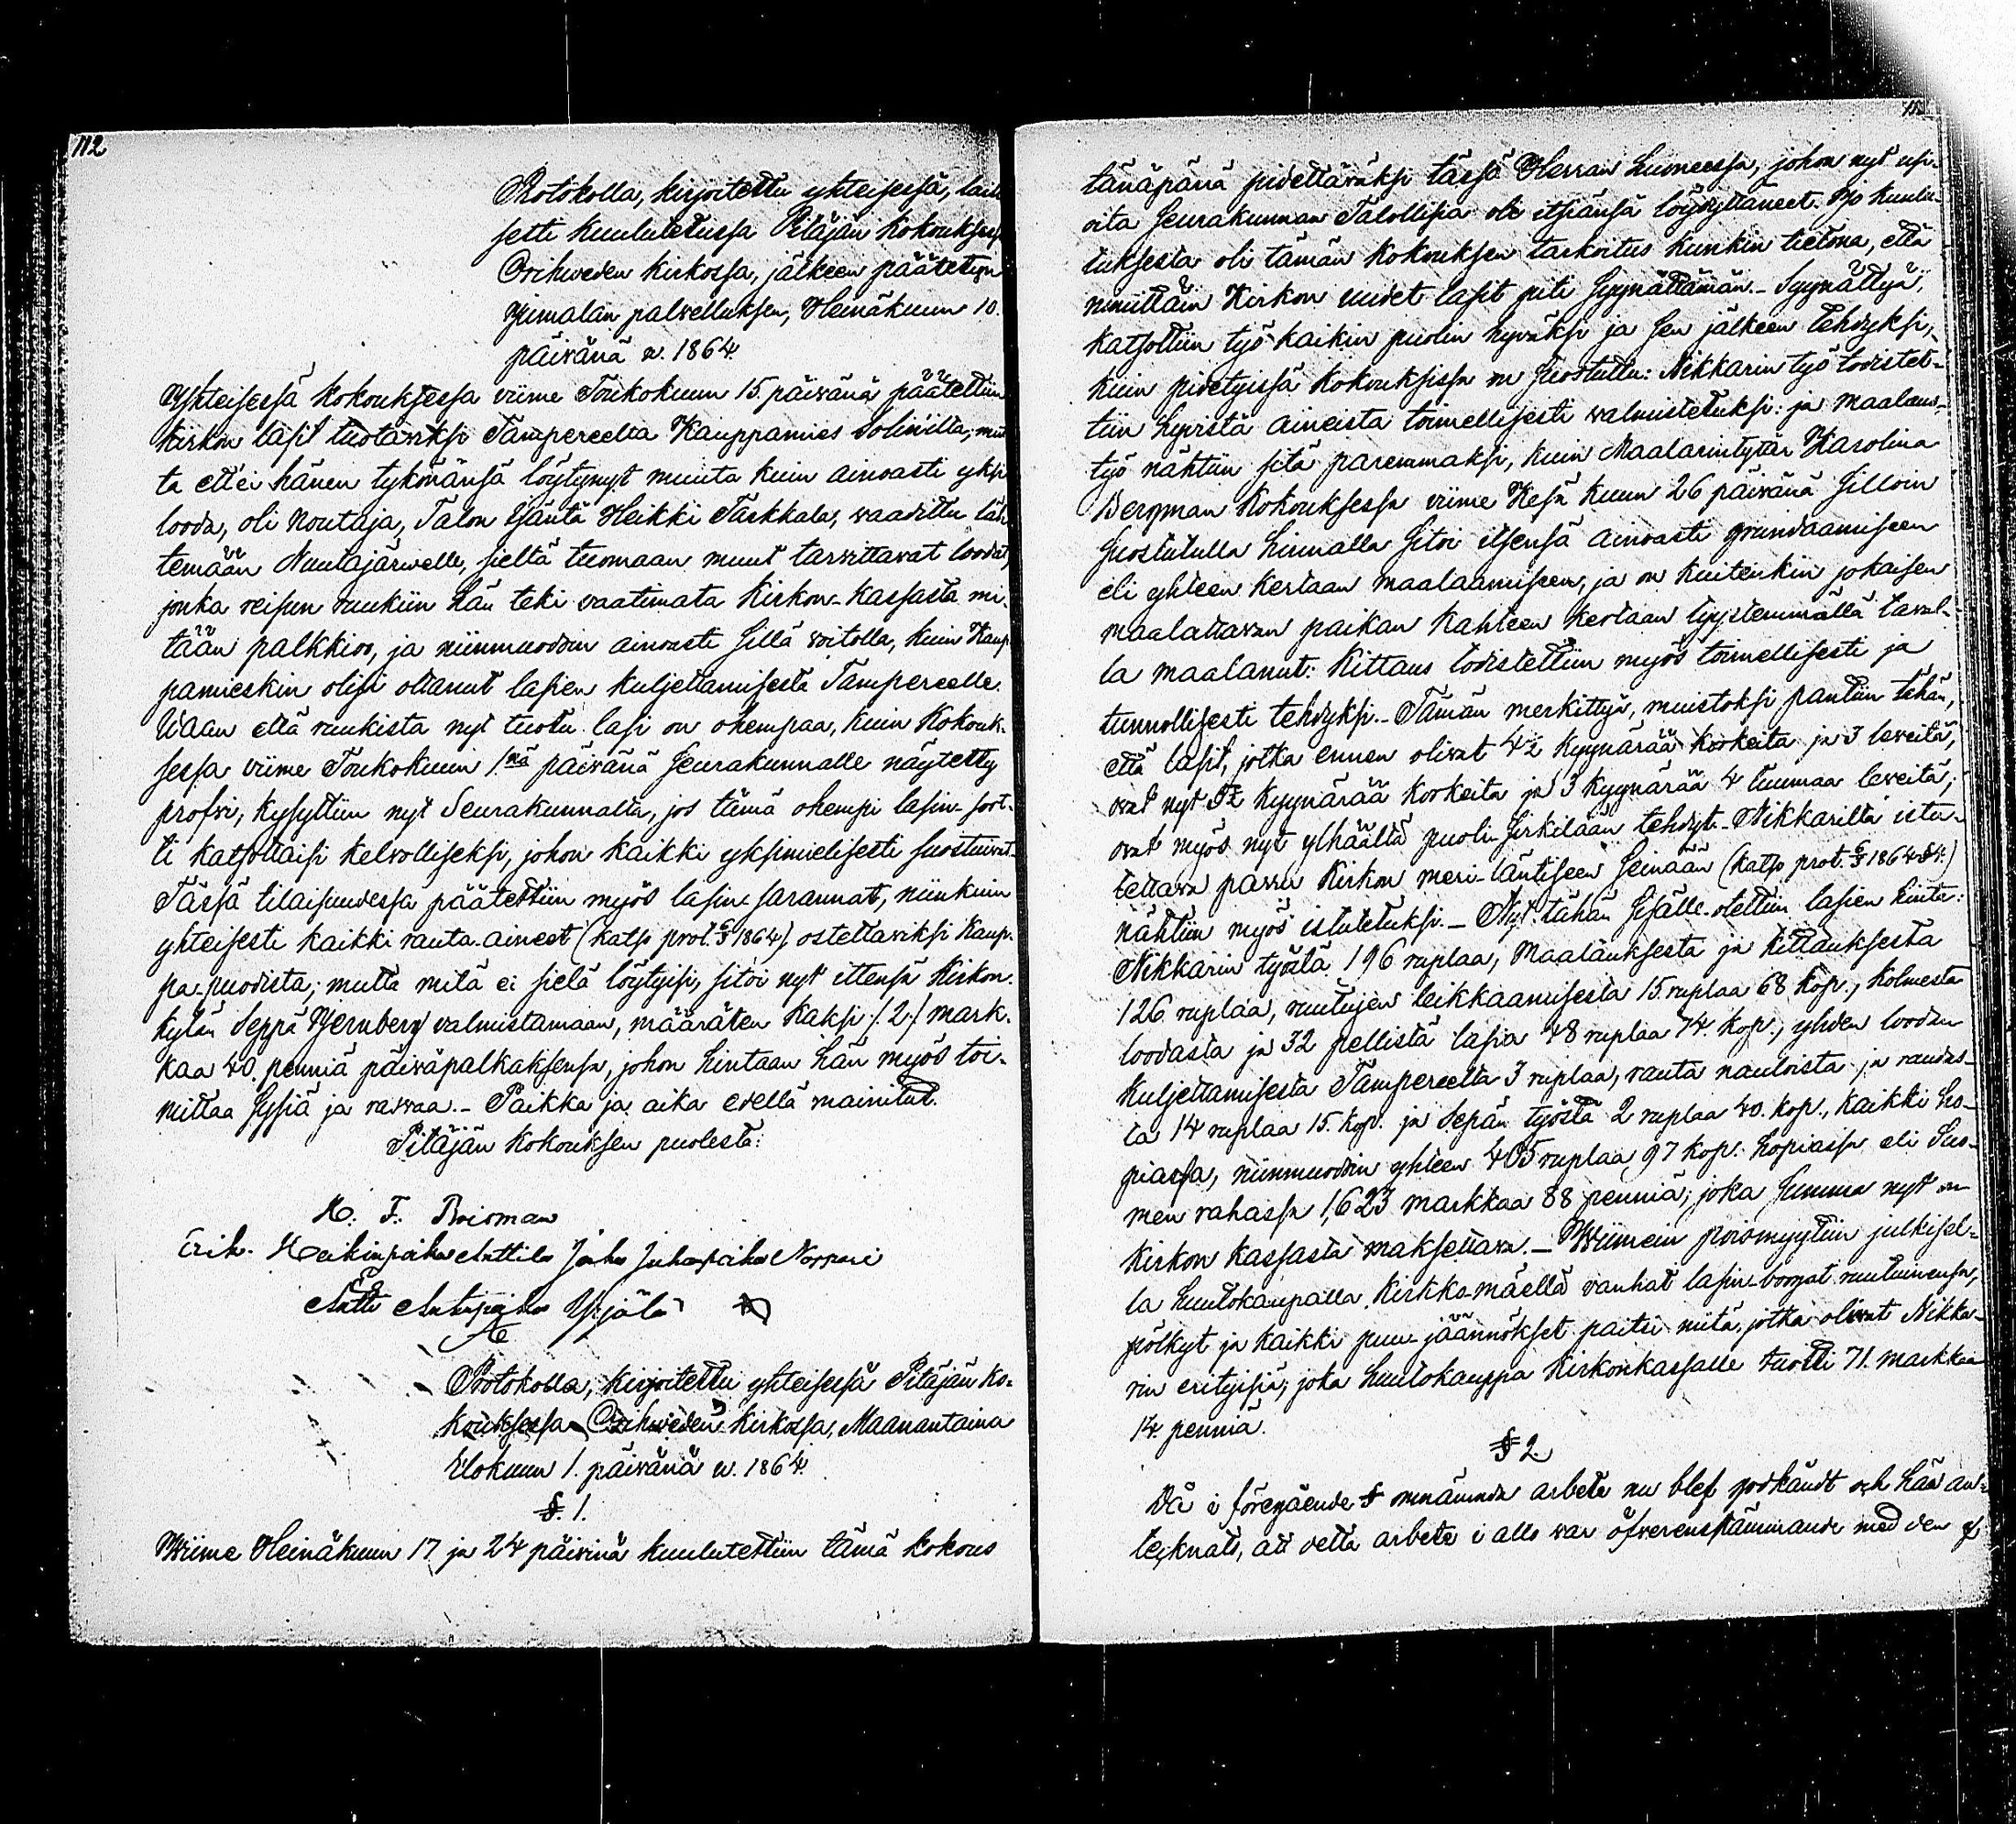 112
Protokolla, kirjoitettu yhteisessä, lail-
sesti kuulutetussa Pitäjän kokoukses
Orihweden kirkossa, jälkeen päätetyn
Jumalan palvelluksen, Heinäkuun 10.
päivänä v. 1864
Yhteisessä kokouksessa viime Toukokuun 15. päivänä päätettiin
kirkon lasit tuotavaksi Tampereelta Kauppamies Solin'ilta, mut
ta ett'ei hänen tykönänsä löytynyt muuta kuin ainoasti yksi
looda, oli noutaja, Talon Isäntä Heikki Tarkkala, vaadittu läh-
temään Nuutajärwelle, sieltä tuomaan muut tarvittavat loodat,
jonka reisun ruukiin hän teki vaatimata Kirkon-kassasta mi-
tään palkkioo, ja niinmuodoin ainoasti sillä voitolla, kuin Kaup-
pamieskin olisi ottanut lasien kuljettamisesta Tampereelle.
Vaan että ruukista nyt tuotu lasi on ohempaa, kuin kokouk-
sessa viime Toukokuun 1.nä päivänä Seurakunnalle näytetty
profvi, kysyttiin nyt Seurakunnalta, jos tämä ohempi lasin-sort-
ti katsottaisi kelvolliseksi, johon kaikki yksimielisesti suostuivat.
Tässä tilaisuudessa päätettiin myös lasin-sarannat, niinkuin
yhteisesti kaikki rauta-aineet (katso prot. 1864) ostettaviksi Kaup-
pa-puodista; mutta mitä ei sielä löytyisi, sitoi nyt ittensä Kirkon-
kylän Seppä Jernberg valmistamaan, määräten kaksi /: 2 :/ mark-
kaa 40. penniä päiväpalkaksensa, johon hintaan hän myös toi-
mittaa sysiä ja rasvaa. - Paikka ja aika edellä mainitut.
Pitäjän kokouksen puolesta:
K. F. Roisman
Erik. Heikinpoika Anttila Juho Juhanpoika Norpari
Antti Antinpoika Yrjälä
Protokolla, kirjoitettu yhteisessä Pitäjän ko-
kouksessa Orihweden kirkossa, Maanantaina
Elokuun 1. päivänä v. 1864.
§. 1.
Wiime Heinäkuun 17 ja 24 päivinä kuulutettiin tämä kokous
tänäpänä pidettäväksi tässä Herran huoneessa, johon nyt usi-
oita Seurakunnan Talollisia oli itsiänsä löydyttäneet. Jo kuulu-
tuksesta oli tämän kokouksen tarkoitus kunkin tietona, että
nimittäin Kirkon uudet lasit piti syynättämän. - Syynättyä,
katsottiin työ kaikin puolin hyväksi ja sen jälkeen tehdyksi,
kuin pidetyissä kokouksissa on suostuttu: Nikkarin työ todistet-
tiin hyvistä aineista toimellisesti valmistetuksi: ja maalaus-
työ nähtiin sitä paremmaksi, kuin Maalarintytär Karolina
Bergman kokouksessa viime Kesä kuun 26 päivänä silloin
suostutulla hinnalla sitoi itsensä ainoasti grundaamiseen
eli yhteen kertaan maalaamiseen, ja on kuitenkin jokaisen
maalattavan paikan kahteen kertaan täydellisemmällä taval-
la maalanut: Kittaus todistettiin myös toimellisesti ja
tunnollisesti tehdyksi. - Tämän merkittyä, muistoksi pantiin tähän,
että lasit, jotka ennen olivat 4½ kyynärää korkeita ja 3 leveitä,
ovat nyt 5½ kyynärää korkeita ja 3 kyynärää 4 tuumaa leveitä;
ovat myös nyt ylhäältä puoli-sirkilään tehdyt. - Nikkarilta istu-
tettava parru Kirkon meri-läntiseen seinään (katso prot. 1864 §4.)
nähtiin myös istutetuksi. - Nyt tähän sisälle otettiin lasien hinta:
Nikkarin työstä 196 ruplaa, Maalauksesta ja kittauksesta
126 ruplaa, ruutujen leikkaamisesta 15. ruplaa 68 kop., kolmesta
loodasta ja 32 pellistä lasia 48 ruplaa 74. kop., yhden loodan
kuljettamisesta Tampereelta 3 ruplaa, rauta nauloista ja raudas-
ta 14 ruplaa 15. kop. ja Sepän työstä 2 ruplaa 40. kop., kaikki ho-
piassa, niinmuodoin yhteen 405 ruplaa 97 kop. hopiassa eli Suo-
men rahassa 1,623 markkaa 88 penniä; joka summa nyt on
Kirkon kassasta maksettava. - Wiimein poismyytiin julkisel-
la huutokaupalla Kirkko-mäellä vanhat lasin-boogat ruutuinensa,
pölkyt ja kaikki puu-jäännökset paitsi niitä, jotka olivat Nikka-
rin erityisiä; joka huutokauppa Kirkonkassalle tuotti 71. markkaa
14. penniä.
§ 2
Då i föregående § omnämnda arbete nu blef godkändt och häri an-
tecknats, att detta arbete i allo var öfverensstämmande med den af